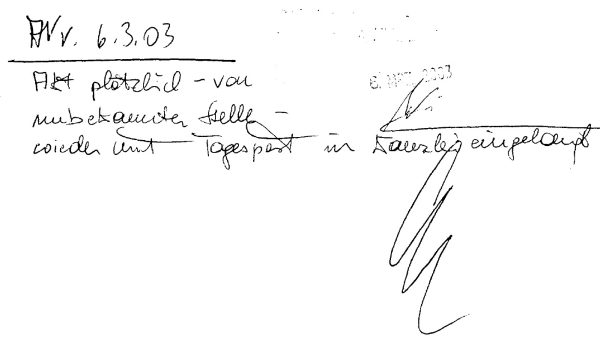 AV v. 6.3.03
6. MRZ. 2003
Akt plötzlich - von
unbekannter Stelle -
wieder mit Tagespost in Kanzlei eingelangt